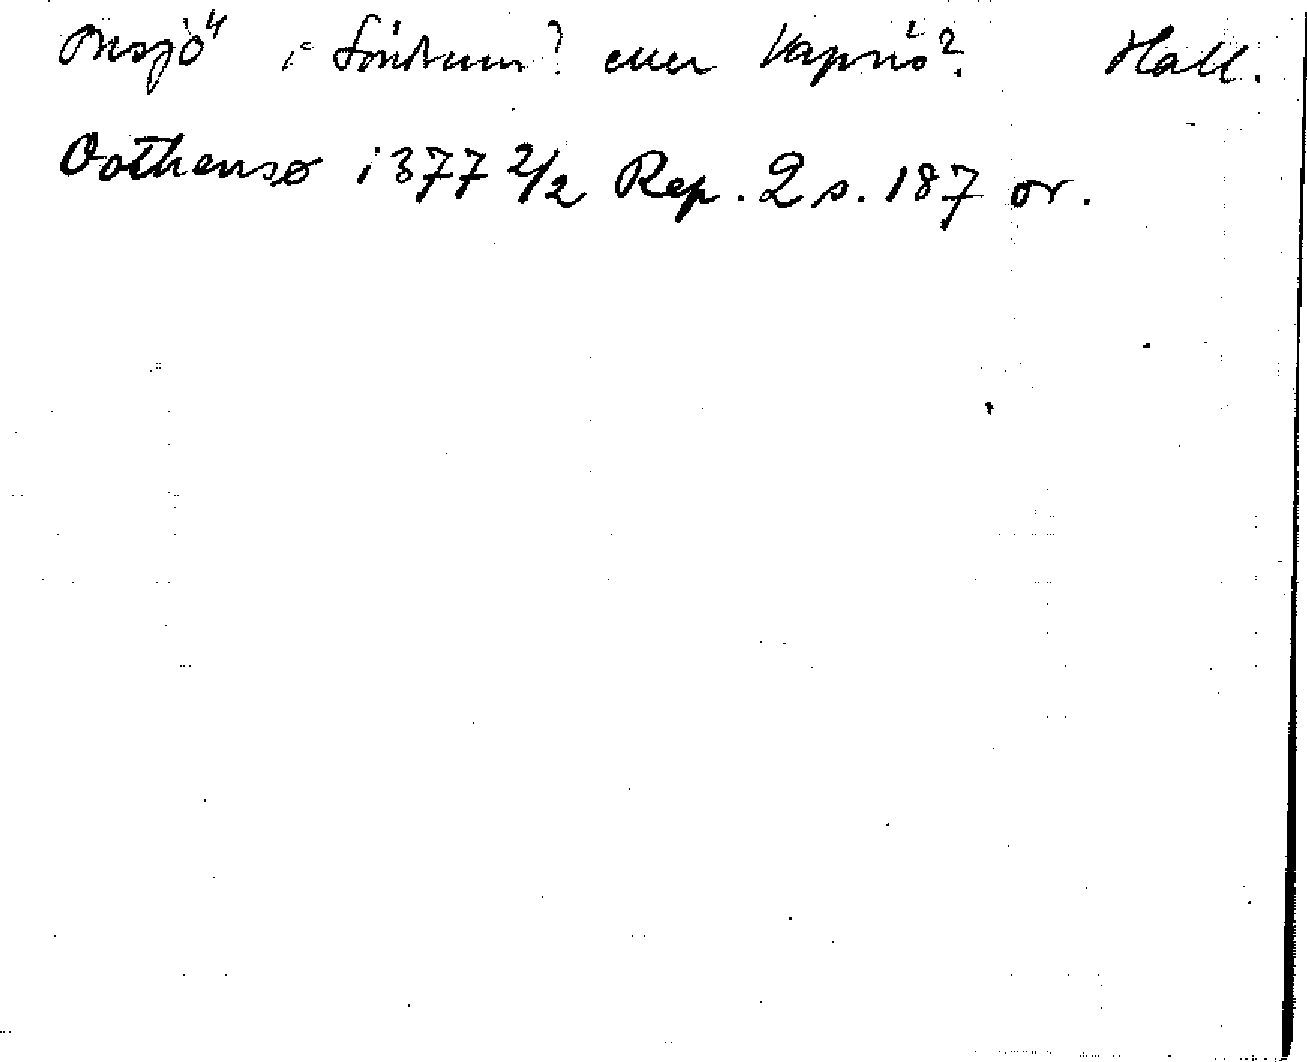 Onsjö i Söndrum? eller Vapnö? Hall.
Oothensø 1377 2/2 Rep. 2 s. 187 or.